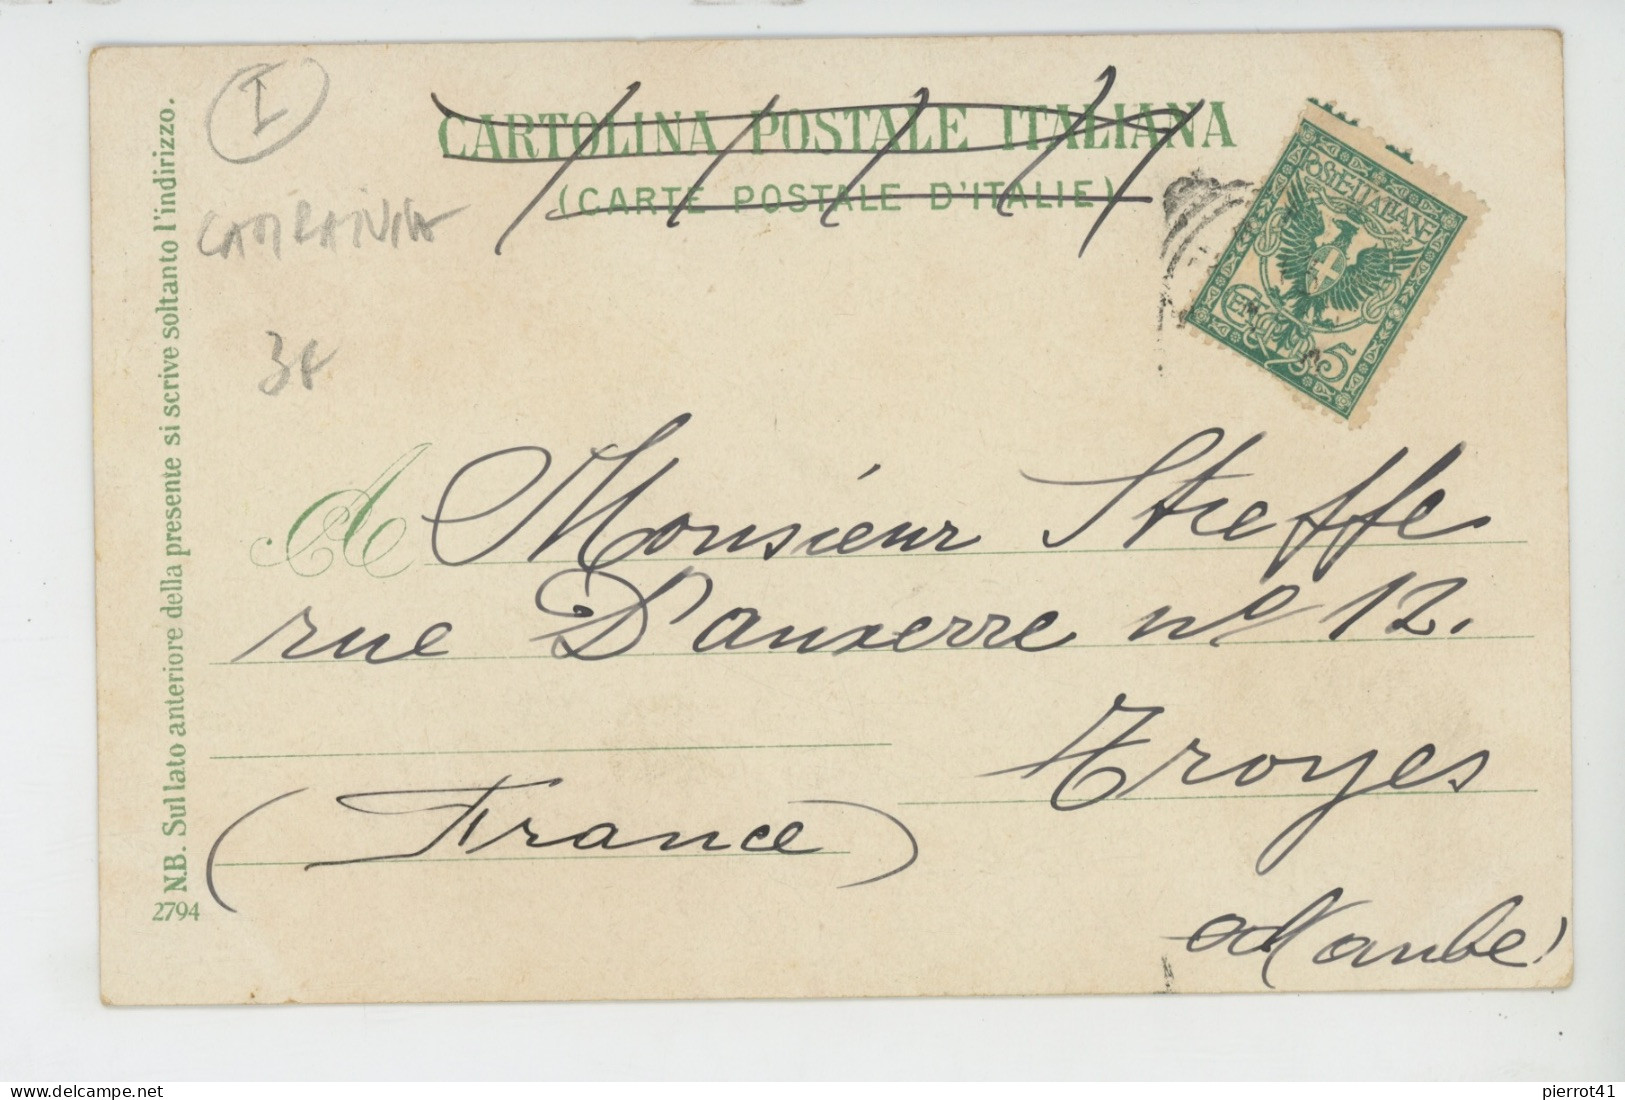 I
CARTOLINA POSTALE ITALIANA
(CARTE POSTALE D'ITALIE)
CAMPANIA
3f
POSTE·ITALIANE
CENT. 5
A Monsieur Steffe
rue D'auxerre nº 12.
Troyes
(France)
aube)
N.B. Sul lato anteriore della presente si scrive soltanto l'indirizzo.
2794
www.delcampe.net
pierrot41